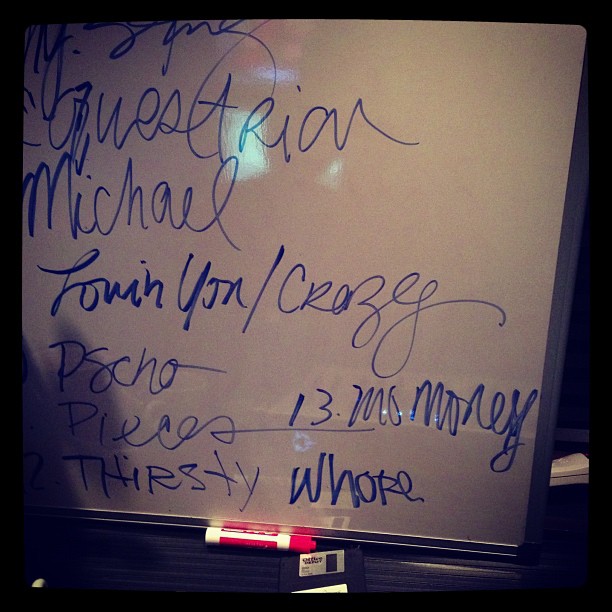 Equestrian
Michael
Lovin You/Crazy
Pscho
Pieces 13. Mo Money
2. Thirsty Whore